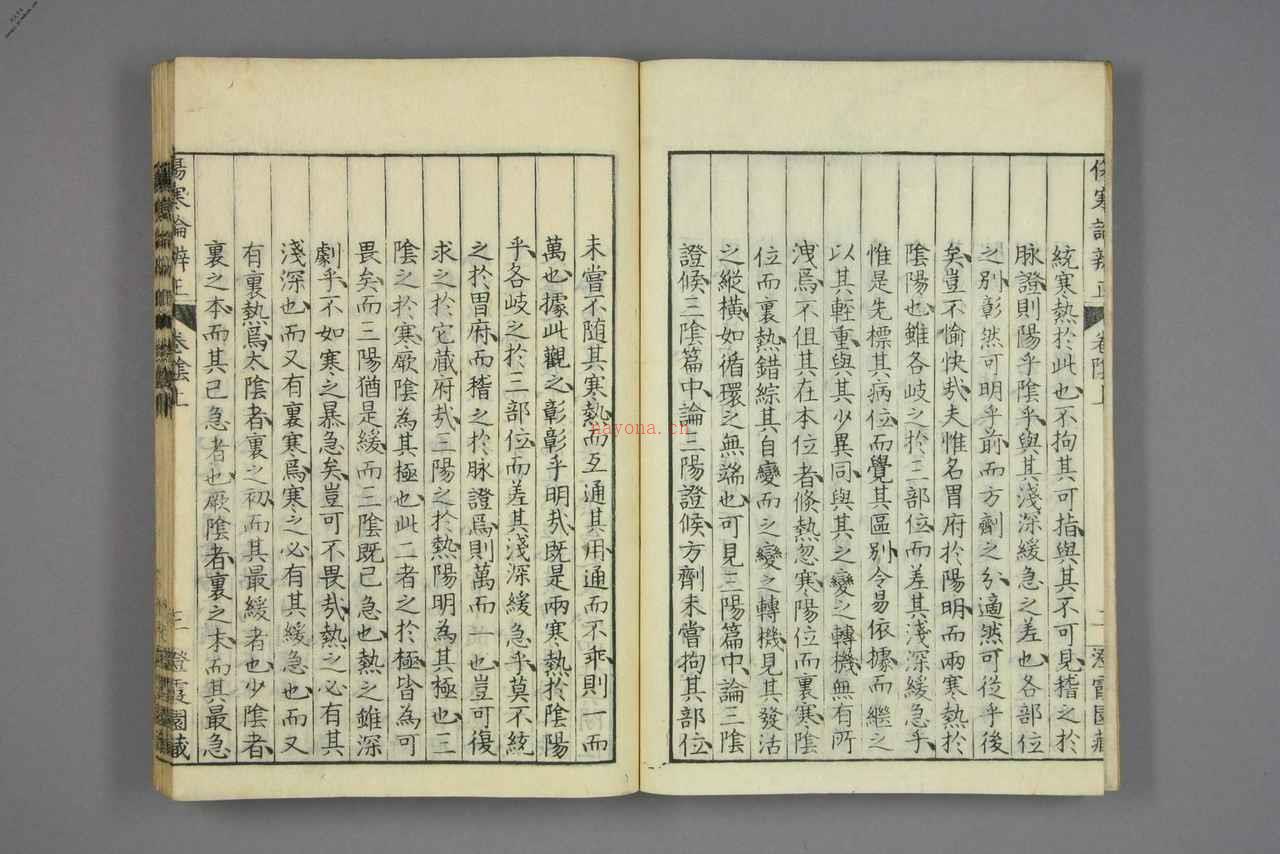 統寒熱於此也不拘其可指與其不可見稽之於
脉證則陽乎陰乎與其淺深緩急之差也各部位
之別彰然可明乎前而方劑之分適然可從乎後
矣豈不愉快哉夫惟名胃府於陽明而兩寒熱於
陰陽也雖各岐之於三部位而差其淺深緩急乎
惟是先標其病位而覺其區別令易依據而繼之
以其輕重與其少異同與其之變之轉機無有所
洩焉不但其在本位者倐熱忽寒陽位而裏寒陰
位而裏熱錯綜其自變而之變之轉機見其發活
之縱橫如循環之無端也可見三陽篇中論三陰
證候三陰篇中論三陽證候方劑未嘗拘其部位
未嘗不隨其寒熱而互通其用通而不乖則一而
萬也據此觀之彰彰乎明哉既是兩寒熱於陰陽
乎各岐之於三部位而差其淺深緩急乎莫不統
之於胃府而稽之於脉證焉則萬而一也豈可復
求之於它藏府哉三陽之於熱陽明為其極也三
陰之於寒厥陰為其極也此二者之於極皆為可
畏矣而三陽猶是緩而三陰既已急也熱之雖深
劇乎不如寒之暴急矣豈可不畏哉熱之必有其
淺深也而又有裏寒焉寒之必有其緩急也而又
有裏熱焉太陰者裏之初而其最緩者也少陰者
裏之本而其已急者也厥陰者裏之末而其最急
傷寒論辨正
卷陰上
二
澄霞園藏
nayona.cn